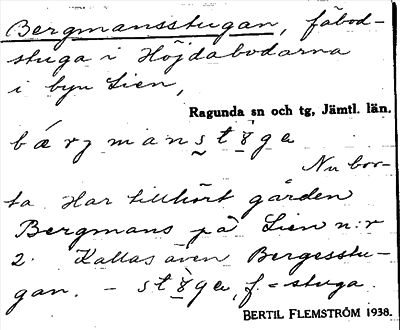 Bergmansstugan, fäbod-
stuga i Höjdabodarna
i byn Lien,
Ragunda sn och tg, Jämtl. län.
Nu bor-
ta. Har tillhört gården
Bergmans på Lien n:r
2. Kallas även Bergesstu-
gan. – f. = stuga.
BERTIL FLEMSTRÖM 1938.